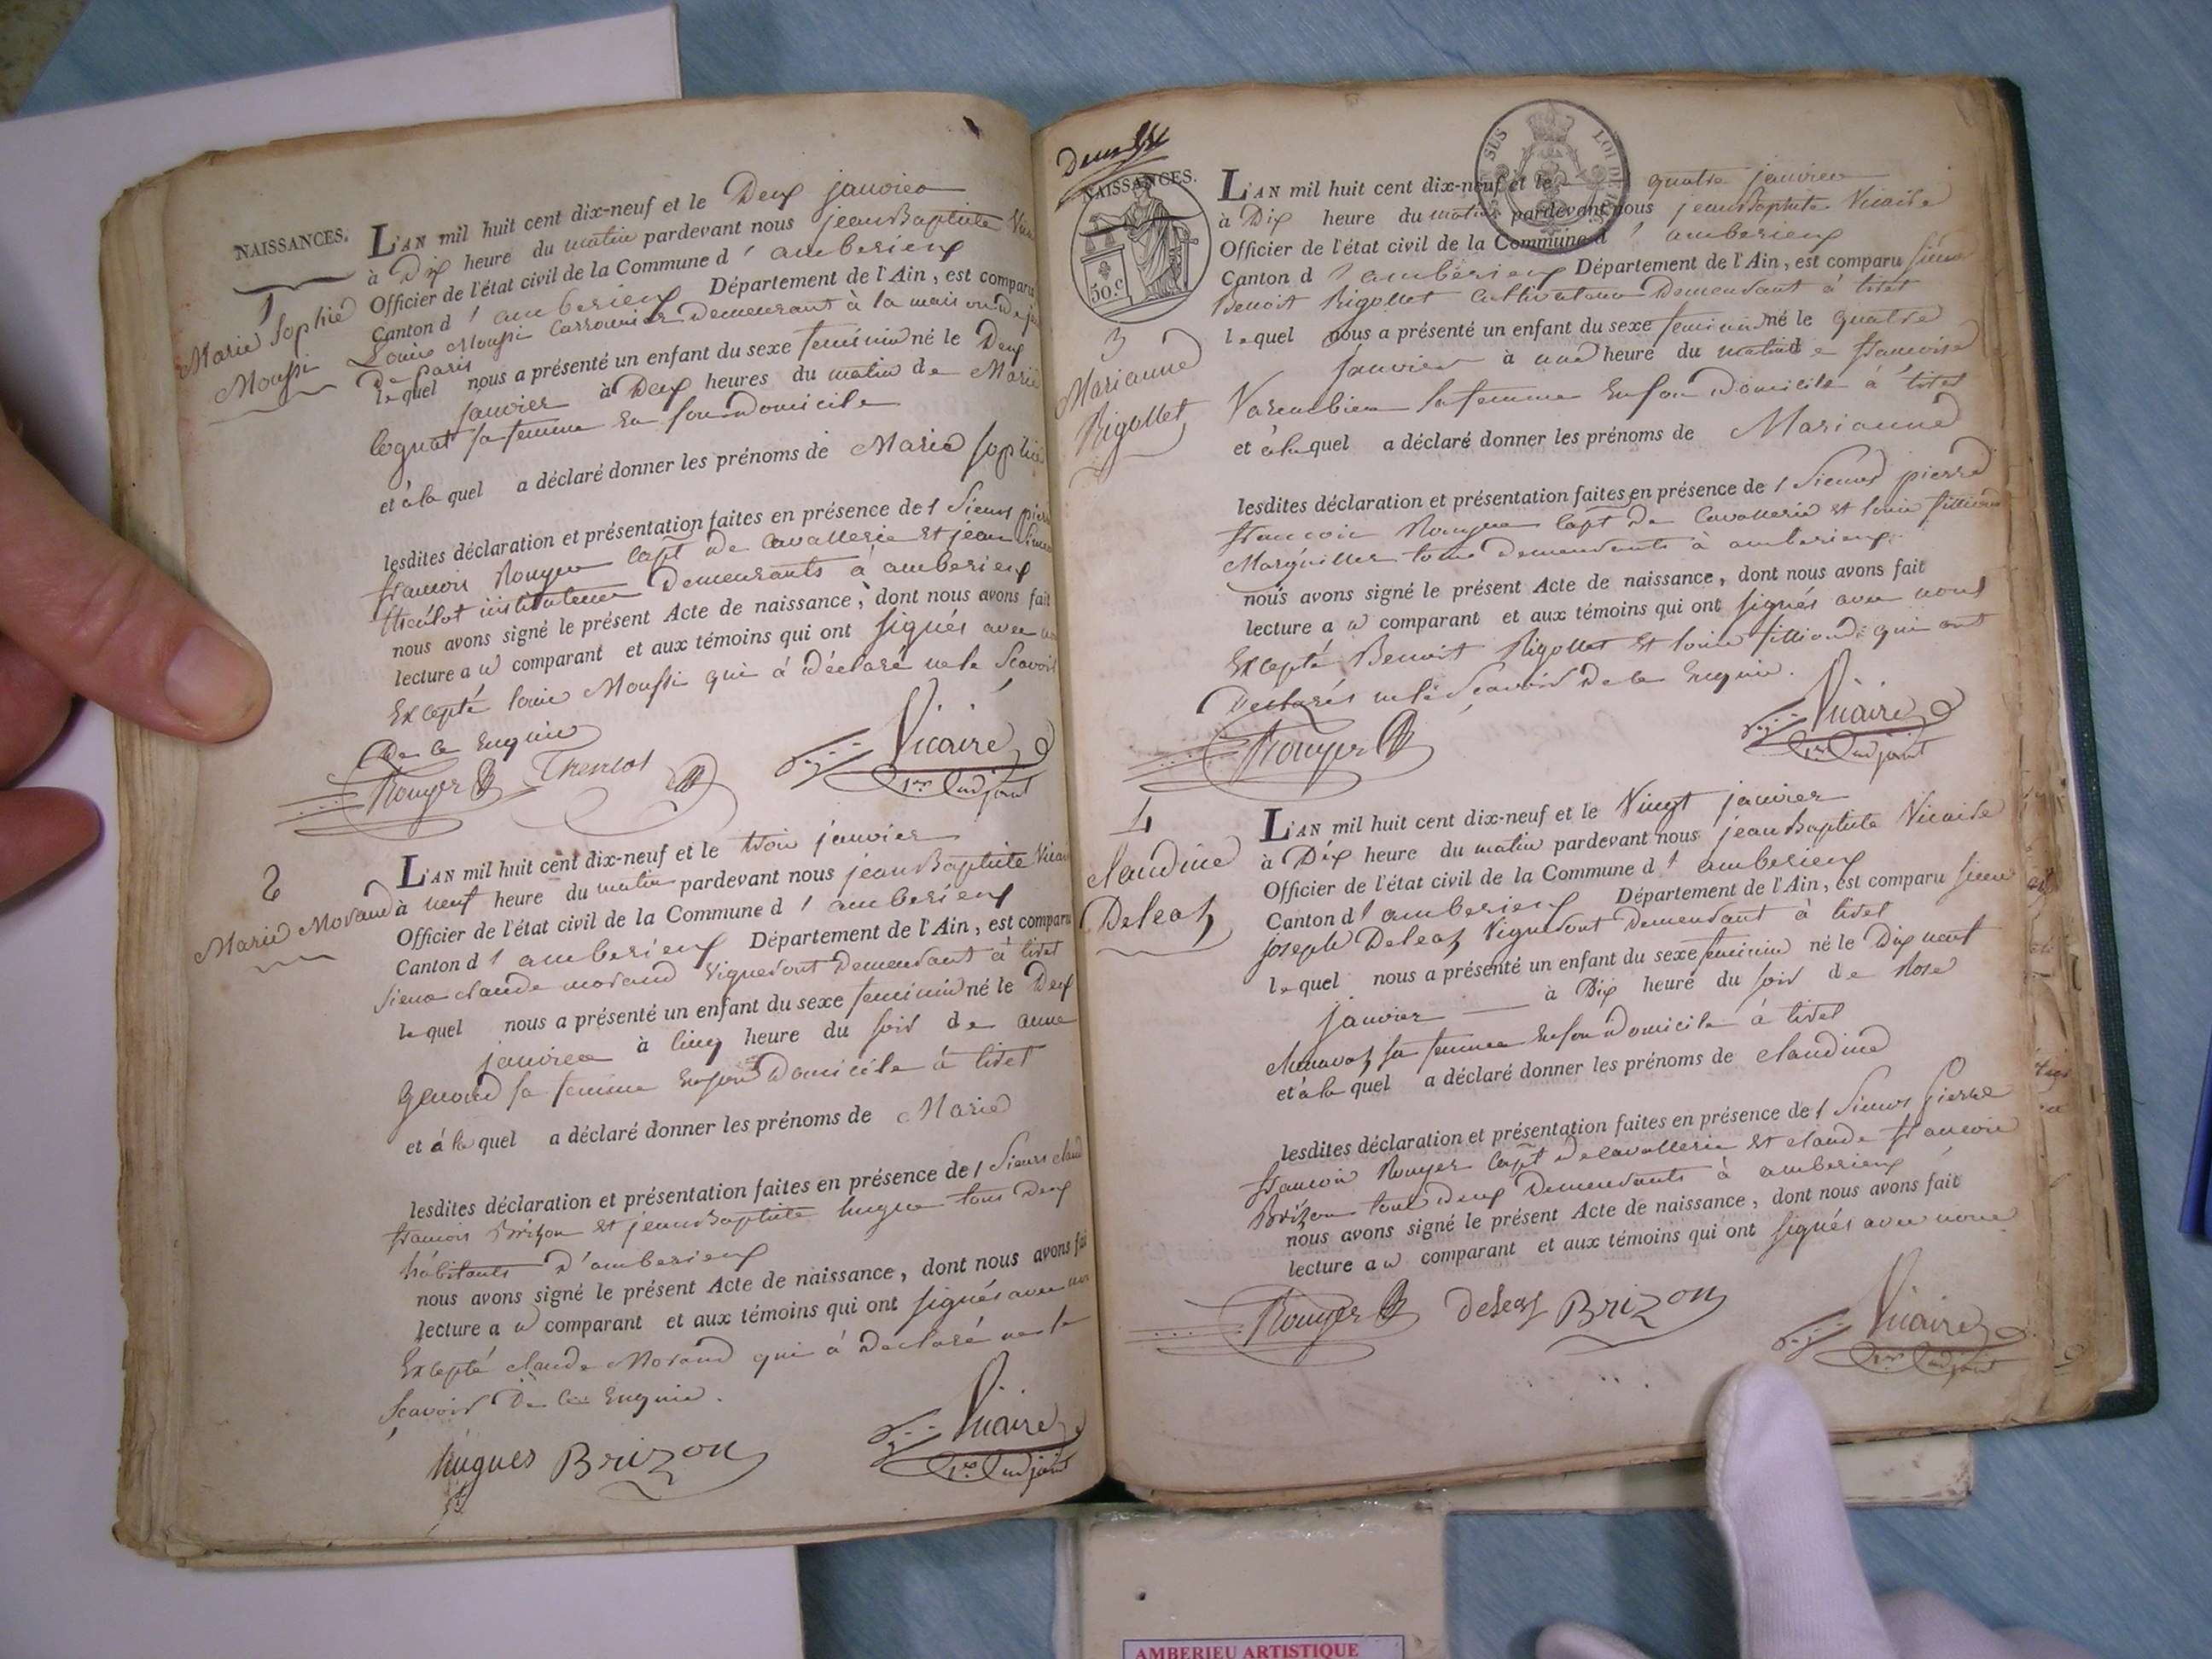 NAISSANCES.
1
Marie Sophie
Moussi
L'AN mil huit cent dix-neuf et le Deux janvier
à Dix heure du matin pardevant nous jean Baptiste
Officier de l'état civil de la Commune d'amberieux
Canton d'amberieux Département de l'Ain, est comparu
Louis Moussi demeurant à la maison
de paris
lequel nous a présenté un enfant du sexe feminin né le Deux
janvier à Deux heures du matin de Marie
sa femme en son Domicile
et à la quel a déclaré donner les prénoms de Marie Sophie
lesdites déclaration et présentation faites en présence des Sieurs
francois Rouyer Capt de Cavallerie et jean
instituteur Demeurants à amberieux
nous avons signé le présent Acte de naissance, dont nous avons fait
lecture au comparant et aux témoins qui ont signés avec
Excepté louis Moussi qui à déclaré ne le Scavoir
De ce Enquis
Rouyer Vicaire
1er adjoint
2
Marie Morand
L'AN mil huit cent dix-neuf et le trois janvier
à neuf heure du matin pardevant nous jean Baptiste
Officier de l'état civil de la Commune d'amberieux
Canton d'amberieux Département de l'Ain, est comparu
Sieur claude morand Vigneront Demeurant à tiret
lequel nous a présenté un enfant du sexe feminin né le Deux
janvier à cinq heure du soir de anne
sa femme en son Domicile à tiret
et à la quel a déclaré donner les prénoms de Marie
lesdites déclaration et présentation faites en présence des Sieurs
francois Brizon et jean Baptiste hugues tous Deux
habitants d'amberieux
nous avons signé le présent Acte de naissance, dont nous avons
lecture au comparant et aux témoins qui ont signés avec
Excepté claude Morand qui à Déclaré ne le
Scavoir De ce Enquis.
hugues Brizon Vicaire
1er adjoint
NAISSANCES.
50.c
3
Marianne
Rigollet
L'AN mil huit cent dix-neuf et le quatre janvier
à Dix heure du matin pardevant nous jean Baptiste Vicaire
Officier de l'état civil de la Commune d'amberieux
Canton d'amberieux Département de l'Ain, est comparu Sieur
Benoit Rigollet Cultivateur Demeurant à tiret
lequel nous a présenté un enfant du sexe feminin né le quatre
janvier à une heure du matin de francoise
sa femme En son Domicile à tiret
et à la quel a déclaré donner les prénoms de Marianne
lesdites déclaration et présentation faites en présence des Sieurs pierre
francois Rouyer Capt De Cavallerie et louis
Marguiller tous demeurants à amberieux
nous avons signé le présent Acte de naissance, dont nous avons fait
lecture au comparant et aux témoins qui ont signés avec nous
Excepté Benoit Rigollet et louis qui ont
Déclarés ne le Scavoir De ce Enquis.
Rouyer Vicaire
1er adjoint
4
claudine
Deleaz
L'AN mil huit cent dix-neuf et le Vingt janvier
à Dix heure du matin pardevant nous jean Baptiste Vicaire
Officier de l'état civil de la Commune d'amberieux
Canton d'amberieux Département de l'Ain, est comparu Sieur
joseph Deleaz Vigneront Demeurant à tiret
lequel nous a présenté un enfant du sexe feminin né le Dix neuf
janvier à Dix heure du soir de Rose
sa femme En son Domicile à tiret
et à la quel a déclaré donner les prénoms de claudine
lesdites déclaration et présentation faites en présence des Sieurs Pierre
francois Rouyer Capt De Cavallerie et claude francois
Brizon tous deux Demeurants à amberieux
nous avons signé le présent Acte de naissance, dont nous avons fait
lecture au comparant et aux témoins qui ont signés avec nous
Rouyer deleaz Brizon Vicaire
1er adjoint
AMBERIEU ARTISTIQUE